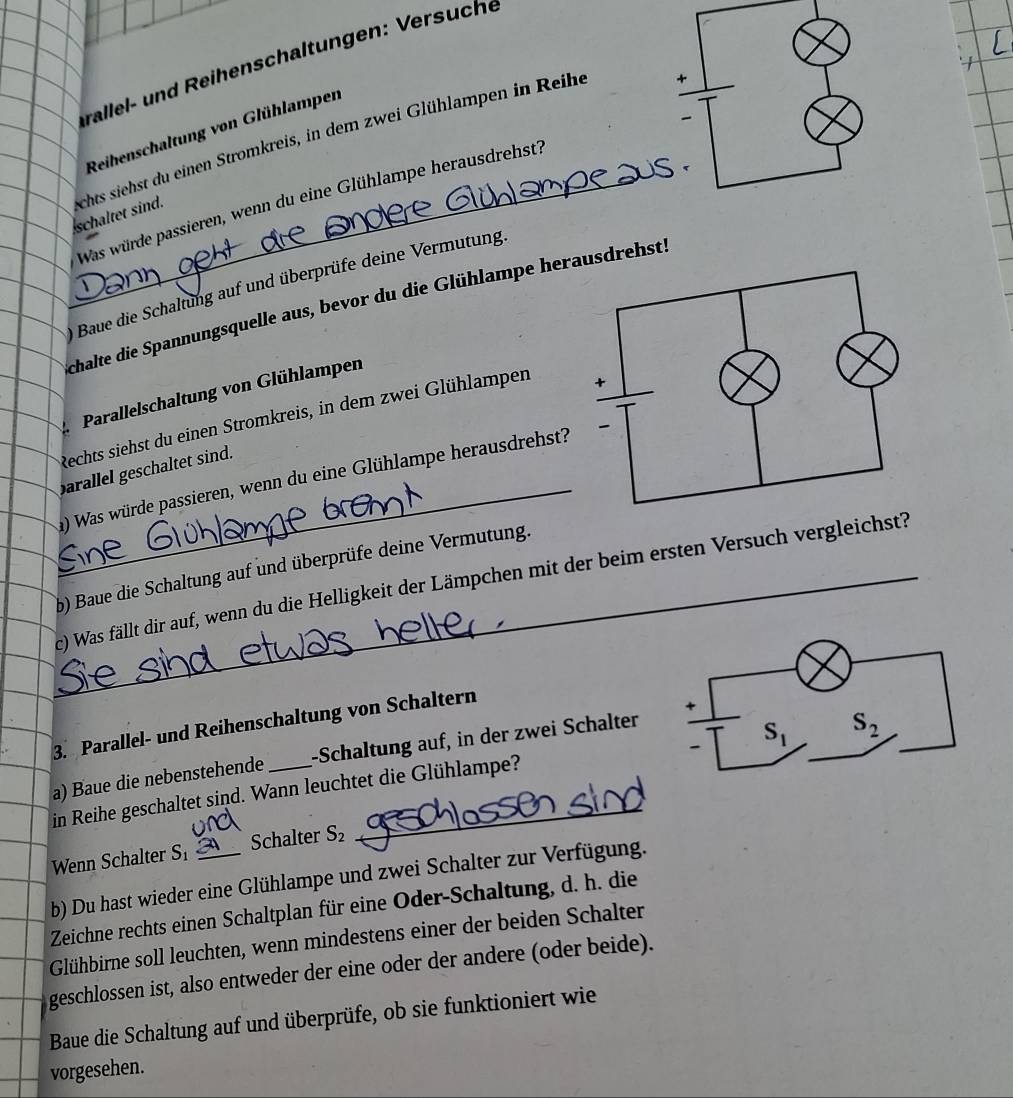 Parallel- und Reihenschaltungen: Versuche
Reihenschaltung von Glühlampen
siehst du einen Stromkreis, in dem zwei Glühlampen in Reihe
schaltet sind.
Was würde passieren, wenn du eine Glühlampe herausdrehst?
Dann geht die andere Glühlampe aus.
) Baue die Schaltung auf und überprüfe deine Vermutung.
chalte die Spannungsquelle aus, bevor du die Glühlampe herausdrehst!
+
-
2. Parallelschaltung von Glühlampen
Rechts siehst du einen Stromkreis, in dem zwei Glühlampen
parallel geschaltet sind.
a) Was würde passieren, wenn du eine Glühlampe herausdrehst?
Eine Glühlampe brennt
+
-
b) Baue die Schaltung auf und überprüfe deine Vermutung.
c) Was fällt dir auf, wenn du die Helligkeit der Lämpchen mit der beim ersten Versuch vergleichst?
Sie sind etwas heller.
3. Parallel- und Reihenschaltung von Schaltern
a) Baue die nebenstehende ____-Schaltung auf, in der zwei Schalter
in Reihe geschaltet sind. Wann leuchtet die Glühlampe?
+
-
S₁ S₂
und
Wenn Schalter S₁ ____ Schalter S₂ geschlossen sind
b) Du hast wieder eine Glühlampe und zwei Schalter zur Verfügung.
Zeichne rechts einen Schaltplan für eine Oder-Schaltung, d. h. die
Glühbirne soll leuchten, wenn mindestens einer der beiden Schalter
geschlossen ist, also entweder der eine oder der andere (oder beide).
Baue die Schaltung auf und überprüfe, ob sie funktioniert wie
vorgesehen.